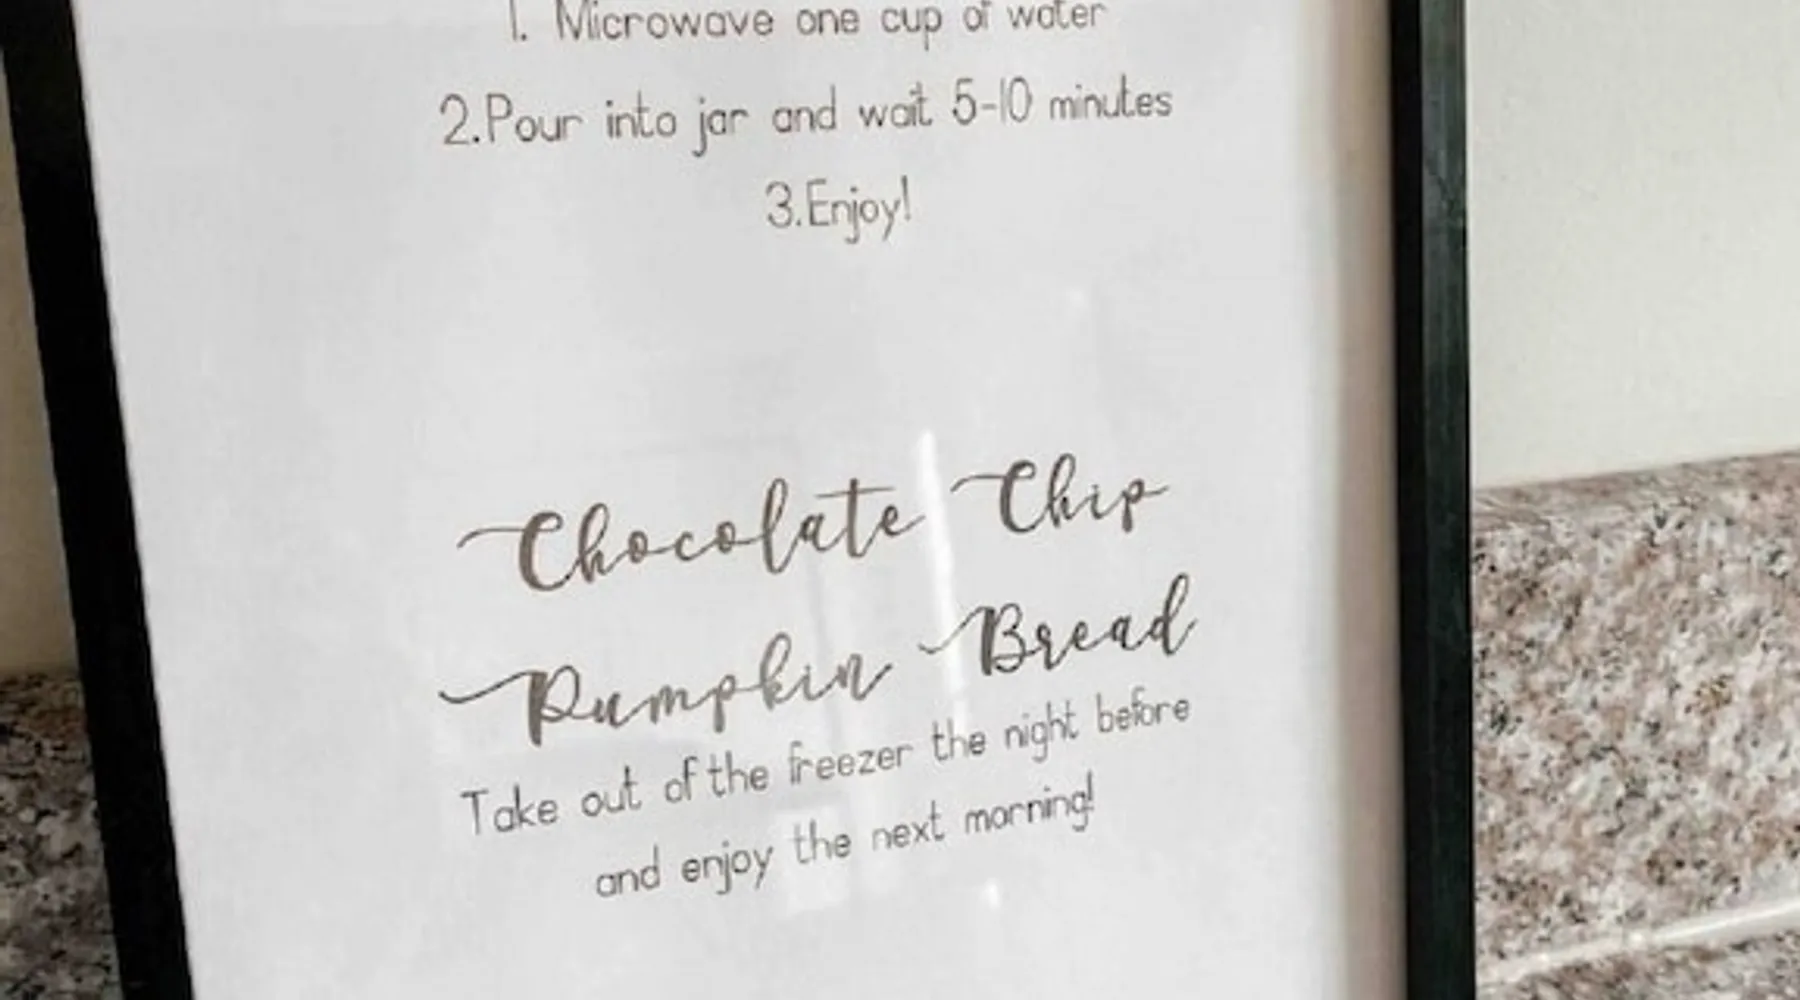 1. Microwave one cup of water
2.Pour into jar and wait 5-10 minutes
3.Enjoy!
Chocolate Chip
Pumpkin Bread
Take out of the freezer the night before
and enjoy the next morning!